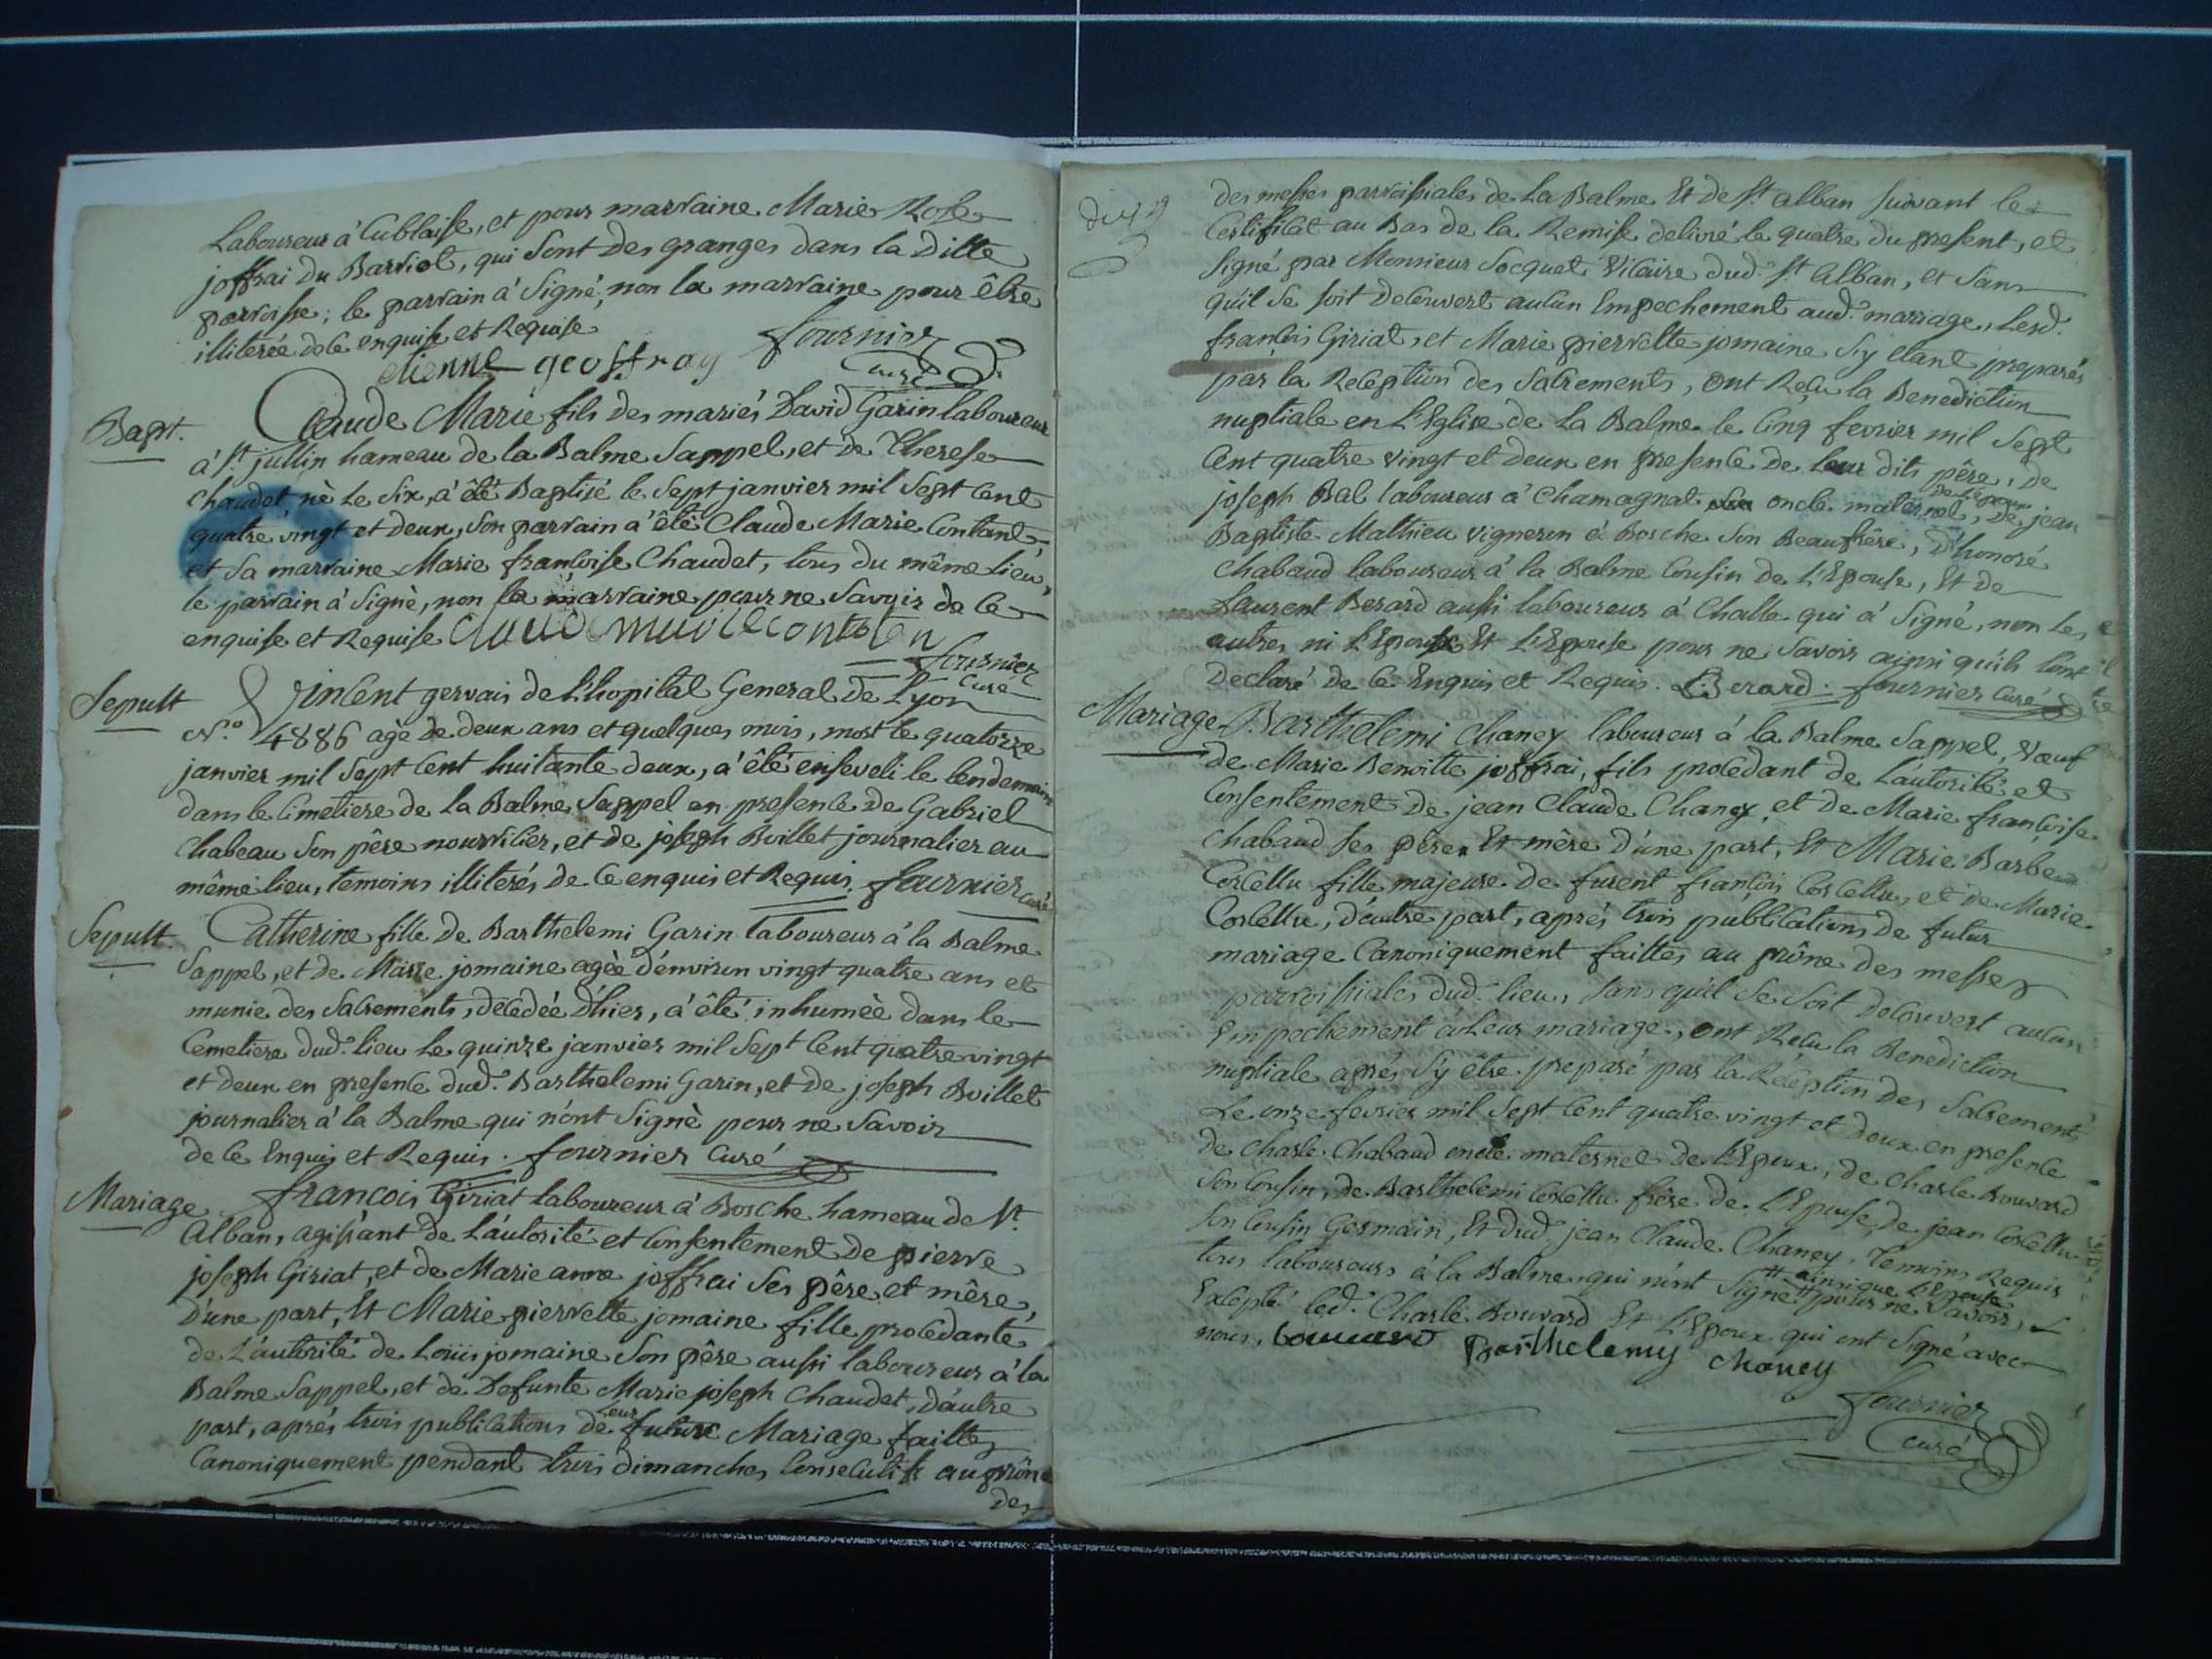 Laboureur à Cublaise, et pour marraine Marie Rose
joffrai du Barriot, qui sont des granges dans la ditte
parroisse; le parrain à signé, non la marraine pour être
illiterée de ce enquise et Requise
etienne geoffray fournier
Curé
Bapt. Claude Marie fils des mariés David Garin laboureur
à St. jullin hameau de la Balme Sappel, et de Therese
Chaudet, né Le Six, à été Baptisé le Sept janvier mil Sept Cent
quatre vingt et deux, Son parrain a été Claude Marie Contant,
et Sa marraine Marie françoise Chaudet, tous du même Lieu,
le parrain à Signé, non la marraine pour ne Savoir de Ce
enquise et Requise
fournier
Curé
Sepult Vincent gervais de L'hopital General de Lyon
N.o 4886 agé de deux ans et quelques mois, mort le quatorze
janvier mil Sept Cent huitante deux, à été enseveli le lendemain
dans le Cimetiere de La Balme Sappel en presence de Gabriel
Chabeau Son pêre nourricier, et de joseph Boillet journalier au
même lieu, temoins illiterés de Ce enquis et Requis. fournier curé
Sepult. Catherine fille de Barthelemi Garin laboureur à la Balme
Sappel, et de Marie jomaine agèe d'environ vingt quatre ans et
munie des Sacrements, décedée D'hier, à été inhumèe dans le
Cemetiere dud. lieu Le quinze janvier mil Sept Cent quatre vingt
et deux en presence dud. Barthelemi Garin, et de joseph Boillet
journalier à la Balme qui n'ont Signè pour ne Savoir
de Ce Enquis et Requis. fournier Curé
Mariage françois Giriat laboureur à Bosche hameau de St.
Alban, agissant de L'autorité et Consentement de pierre
joseph Giriat, et de Marie anne joffrai Ses pêre et mêre,
d'une part, Et Marie pierrette jomaine fille procedante
de L'autorité de Loüis jomaine Son pêre aussi laboureur à la
Balme Sappel, et de Defunte Marie joseph Chaudet, d'autre
part, après trois publications de Leur futur Mariage faittes
Canoniquement pendant trois dimanches Consecutifs au prône
des
des messes parroissiales de La Balme Et de St. alban suivant le
Certificat au Bas de la Remise delivré le quatre du present, et
Signé par Monsieur Socquet Vicaire dud. St. Alban, et Sans
qu'il Se soit decouvert aucun Empechement aud. marriage, Lesd.
françois Giriat, et Marie pierrette jomaine S'y etant preparés
par la Reception des Sacrements, ont Reçu la Benediction
nuptiale en L'Eglise de La Balme le Cinq fevrier mil Sept
Cent quatre vingt et deux en presence de leur dits pêre, de
joseph Bal laboureur à Chamagnat oncle maternel de L'epoux, De jean
Baptiste Matthieu vigneron à Bosche Son Beaufrêre, D'honoré
Chabaud laboureur à la Balme Cousin de L'Epouse, Et de
Laurent Berard aussi laboureur à Challe qui à Signé, non Les
autres, ni L'Epoux Et L'Epouse pour ne Savoir ainsi qu'ils l'ont
Declaré de Ce Enquis et Requis. L. Berard. fournier Curé
Mariage Barthelemi Chaney laboureur à la Balme Sappel, Vœuf
de Marie Benoitte joffrai, fils procedant de L'autorité et
Consentement de jean Claude Chaney, et de Marie françoise
Chabaud Ses pêre Et mère d'une part, Et Marie Barbe
Corcellu fille majeure de furent françois Corcellu, et de Marie
Corcellu, d'autre part, après trois publications de futur
mariage Canoniquement faittes au prône des messes
parroissiales dud. lieu, Sans qu'il Se Soit decouvert aucun
Empechement à Leur mariage, ont Reçu la Benediction
nuptiale après S'y être preparé par la Reception des Sacrements
Le onze fevrier mil Sept Cent quatre vingt et deux en presence
de Charle Chabaud oncle maternel de L'Epoux, de Charle Bouvard
Son Cousin, de Barthelemi Corcellu frère de L'Epouse, de jean Corcellu
Son Cousin Germain, Et dud. jean Claude Chaney, Temoins Requis
tous laboureurs à la Balme qui n'ont Signé ainsi que L'Epouse pour ne Savoir,
Excepté led. Charle Bouvard Et L'Epoux qui ont Signé avec
nous, Barthelemy chaney
fournier
Curé